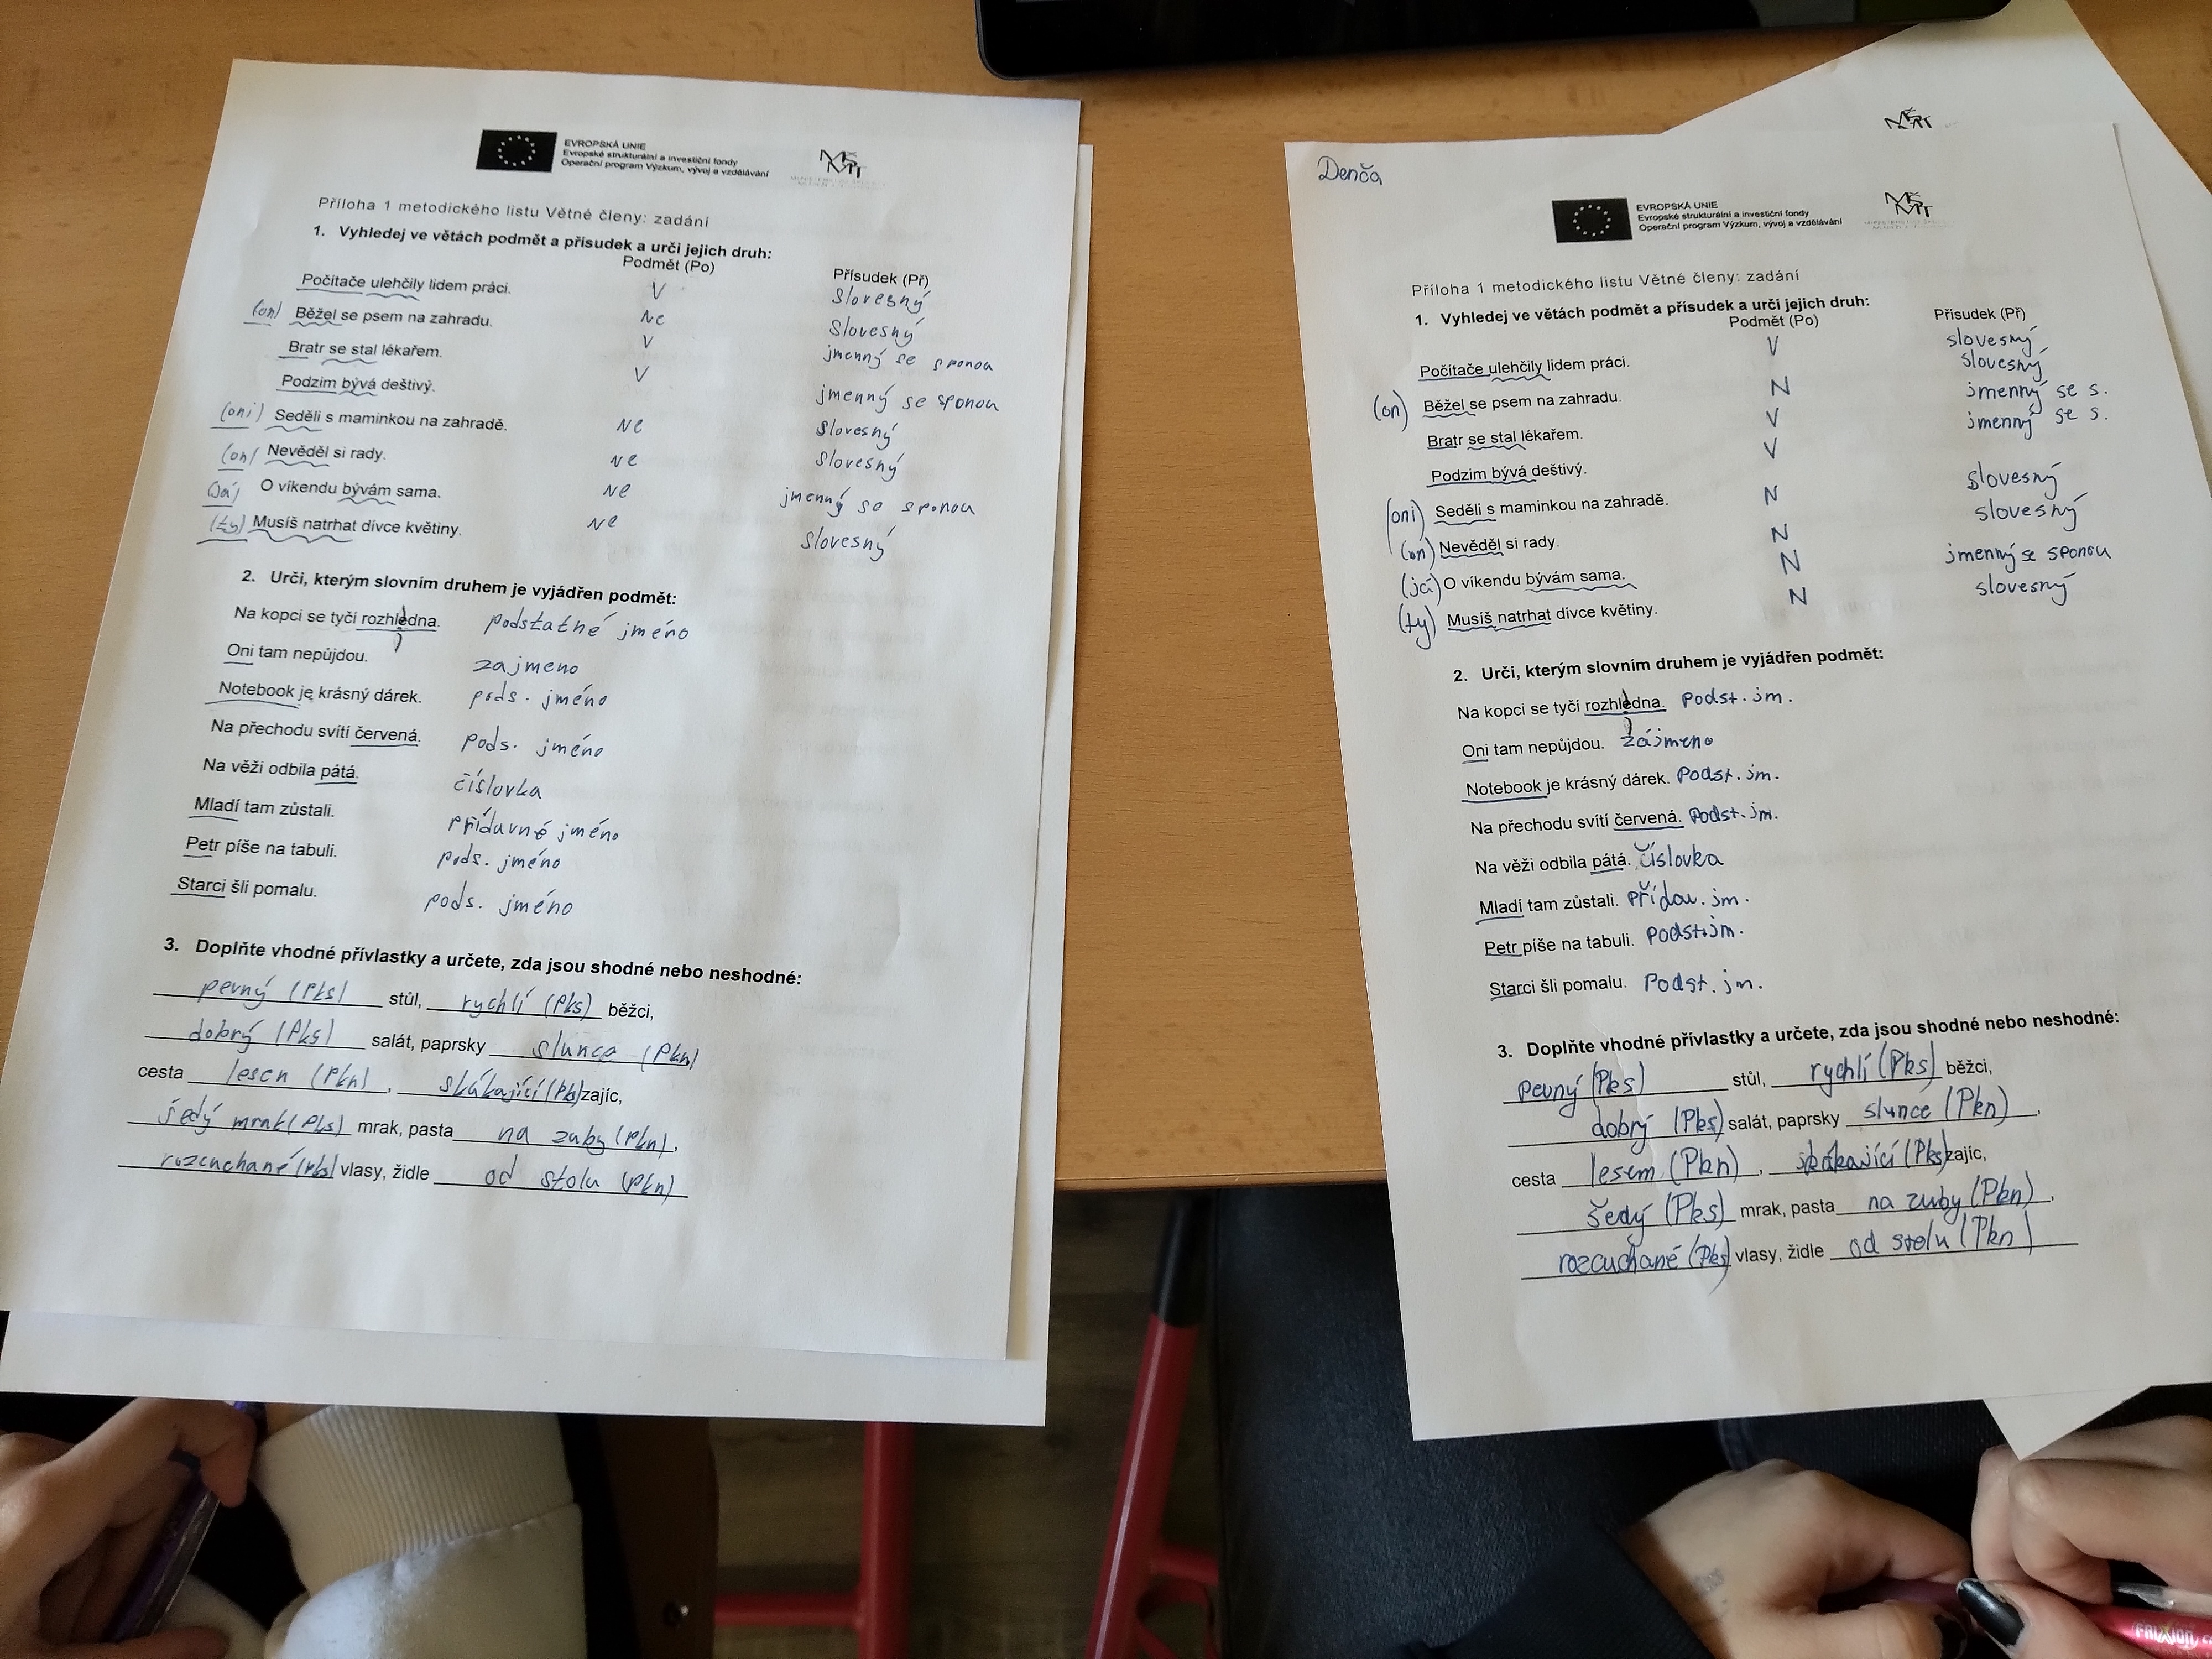 EVROPSKÁ UNIE
Evropské strukturální a investiční fondy
Operační program Výzkum, vývoj a vzdělávání
Příloha 1 metodického listu Větné členy: zadání
1. Vyhledej ve větách podmět a přísudek a urči jejich druh:
Podmět (Po) Přísudek (Př)
Počítače ulehčily lidem práci. V slovesný
(on) Běžel se psem na zahradu. Ne Slovesný
Bratr se stal lékařem. V jmenný se sponou
Podzim bývá deštivý. V jmenný se sponou
(oni) Seděli s maminkou na zahradě. Ne Slovesný
(on) Nevěděl si rady. Ne Slovesný
(Já) O víkendu bývám sama. Ne jmenný se sponou
(ty) Musíš natrhat dívce květiny. Ne Slovesný
2. Urči, kterým slovním druhem je vyjádřen podmět:
Na kopci se tyčí rozhledna. podstatné jméno
Oni tam nepůjdou. zajmeno
Notebook je krásný dárek. pods. jméno
Na přechodu svítí červená. pods. jméno
Na věži odbila pátá. číslovka
Mladí tam zůstali. přídavné jméno
Petr píše na tabuli. pods. jméno
Starci šli pomalu. pods. jméno
3. Doplňte vhodné přívlastky a určete, zda jsou shodné nebo neshodné:
pevný (Pks) stůl, rychlí (Pks) běžci,
dobrý (Pks) salát, paprsky slunce (Pkn)
cesta lesem (Pkn), skákající (Pks) zajíc,
šedý mrak (Pks) mrak, pasta na zuby (Pkn),
rozcuchané (Pks) vlasy, židle od stolu (Pkn)
Denča
EVROPSKÁ UNIE
Evropské strukturální a investiční fondy
Operační program Výzkum, vývoj a vzdělávání
Příloha 1 metodického listu Větné členy: zadání
1. Vyhledej ve větách podmět a přísudek a urči jejich druh:
Podmět (Po) Přísudek (Př)
Počítače ulehčily lidem práci. V slovesný
(on) Běžel se psem na zahradu. N slovesný
Bratr se stal lékařem. V jmenný se s.
Podzim bývá deštivý. V jmenný se s.
(oni) Seděli s maminkou na zahradě. N slovesný
(on) Nevěděl si rady. N slovesný
(já) O víkendu bývám sama. N jmenný se sponou
(ty) Musíš natrhat dívce květiny. N slovesný
2. Urči, kterým slovním druhem je vyjádřen podmět:
Na kopci se tyčí rozhledna. Podst. jm.
Oni tam nepůjdou. zájmeno
Notebook je krásný dárek. Podst. jm.
Na přechodu svítí červená. Podst. jm.
Na věži odbila pátá. číslovka
Mladí tam zůstali. přídav. jm.
Petr píše na tabuli. Podst. jm.
Starci šli pomalu. Podst. jm.
3. Doplňte vhodné přívlastky a určete, zda jsou shodné nebo neshodné:
pevný (Pks) stůl, rychlí (Pks) běžci,
dobrý (Pks) salát, paprsky slunce (Pkn),
cesta lesem (Pkn), skákající (Pks) zajíc,
šedý (Pks) mrak, pasta na zuby (Pkn),
rozcuchané (Pks) vlasy, židle od stolu (Pkn)
FRIXION